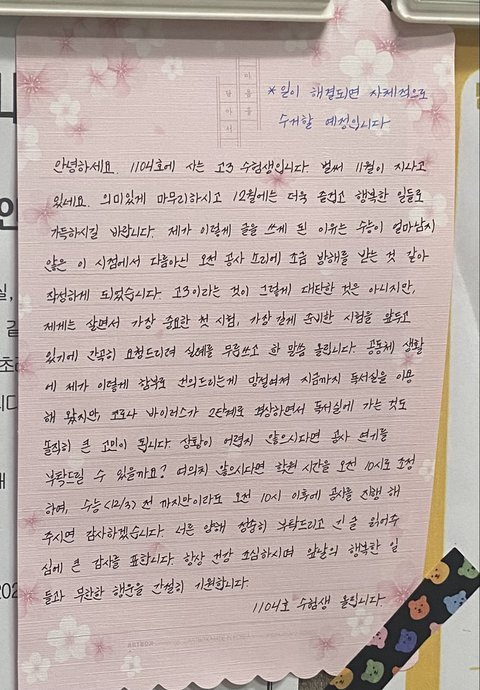 마음을
담아서
*일이 해결되면 자체적으로
수거할 예정입니다
안녕하세요. 1104호에 사는 고3 수험생입니다. 벌써 11월이 지나고
있네요. 의미있게 마무리하시고 12월에는 더욱 즐겁고 행복한 일들로
가득하시길 바랍니다. 제가 이렇게 글을 쓰게 된 이유는 수능이 얼마남지
않은 이 시점에서 다름아닌 오전 공사 소리에 조금 방해를 받는 것 같아
작성하게 되었습니다. 고3이라는 것이 그렇게 대단한 것은 아니지만,
제게는 살면서 가장 중요한 첫 시험, 가장 길게 준비한 시험을 앞두고
있기에 간곡히 요청드리려 실례를 무릅쓰고 한 말씀 올립니다. 공동체 생활
에 제가 이렇게 함부로 건의드리는게 망설여져 지금까지 독서실을 이용
해 왔지만, 코로나 바이러스가 2단계로 격상하면서 독서실에 가는 것도
솔직히 큰 고민이 됩니다. 상황이 어렵지 않으시다면 공사 연기를
부탁드릴 수 있을까요? 여의치 않으시다면 착공 시간을 오전 10시로 조정
하여, 수능(12/3) 전 까지만이라도 오전 10시 이후에 공사를 진행 해
주시면 감사하겠습니다. 너른 양해 정중히 부탁드리고 긴 글 읽어주
심에 큰 감사를 표합니다. 항상 건강 조심하시며 앞날의 행복한 일
들과 무한한 행운을 간절히 기원합니다.
1104호 수험생 올립니다.